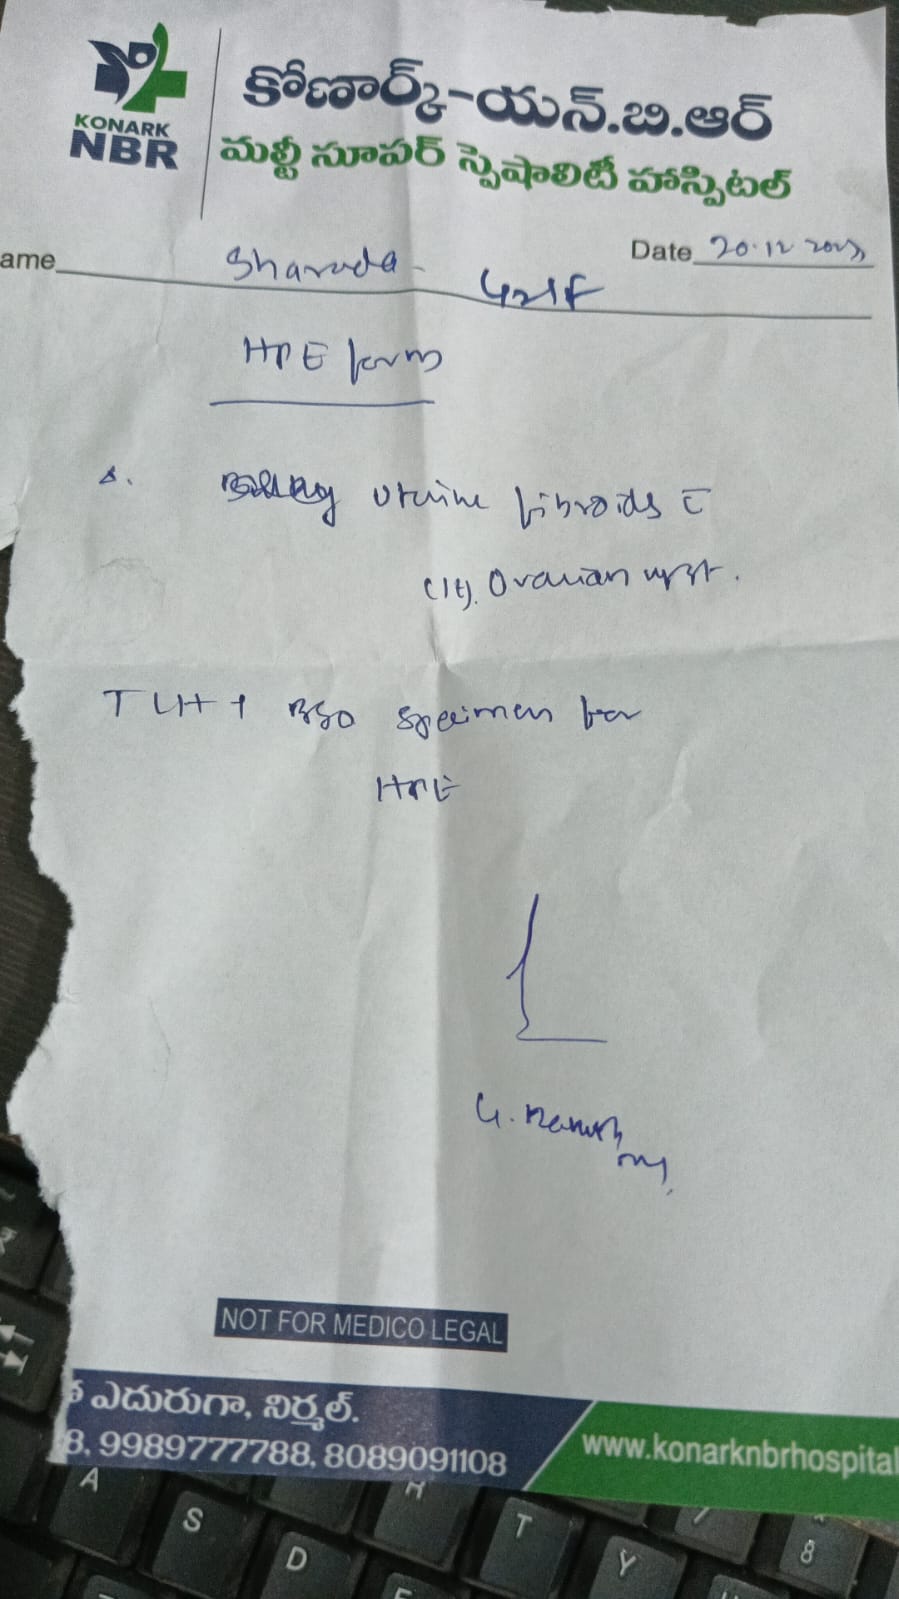 KONARK
NBR
కోణార్క్-యన్.బి.ఆర్
మల్టీ సూపర్ స్పెషాలిటీ హాస్పిటల్
ame Sharada Date 20.12.2023
42/F
HPE form
Δ. uterine fibroids c̄
(lt). Ovarian cyst.
TLH + BSO specimen for
HPE
NOT FOR MEDICO LEGAL
ఎదురుగా, నిర్మల్.
8, 9989777788, 8089091108
www.konarknbrhospital
A
S
D
H
T
Y
7
8